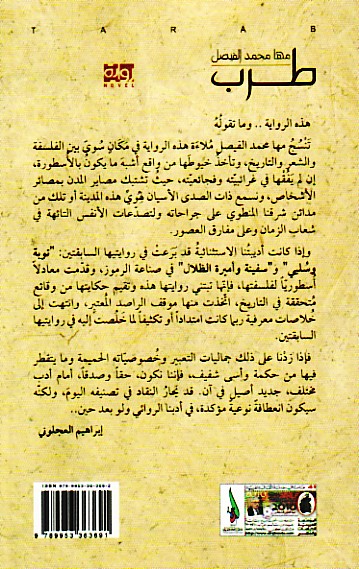 TARAB
مها محمد الفيصل
طرب
رواية
NOVEL
هذه الرواية .. وما تقولُه
تَنْسُجُ مها محمد الفيصل مُلاءَة هذه الرواية في مَكانٍ سُوىً بين الفلسفة
والشعر والتاريخ، وتأخذ خيوطَها من واقع أشبه ما يكون بالأسطورة،
إن لم يَفُقْها في غرائبيّته وفجائعيّته، حيثُ تشتبك مصاير المدن بمصائر
الأشخاص، ونسمع ذات الصدى الأسيان يَدْوي هذه المدينة أو تلك من
مدائن شرقنا المنطوي على جراحاته ولتصدّعات الأنفس التائهة في
شعاب الزمان وعلى مفارق العصور.
وإذا كانت أديبتنا الاستثنائيةُ قد بَرَعتْ في روايتيها السابقتين: "توبة
وسُلَيى" و"سفينة وأميرة الظلال" في صناعة الرموز، وقدّمت معادلاً
أسطوريّاً لفلسفتها، فإنها تبتني روايتها هذه وتقيم حكايتها من وقائع
مُتحققة في التاريخ، اتّخذت منها موقف الراصد المُعتبر، وانتهت إلى
خلاصات معرفية ربما كانت امتداداً أو تكثيفاً لما خَلَصتْ إليه في روايتيها
السابقتين.
فإذا زدْنا على ذلك جماليات التعبير وخُصوصيّاته الحميمة وما يتقطر
فيها من حكمة وأسى شفيف، فإننا نكون، حقاً وصدقاً، أمام أدب
مختلف، جديد أصيل في آن. قد يَحارُ النقاد في تصنيفه اليومَ، ولكنّه
سيكون انعطافة نوعيةً مؤكدة، في أدبنا الروائي ولو بعد حين..
إبراهيم العجلوني
9 789953 363691